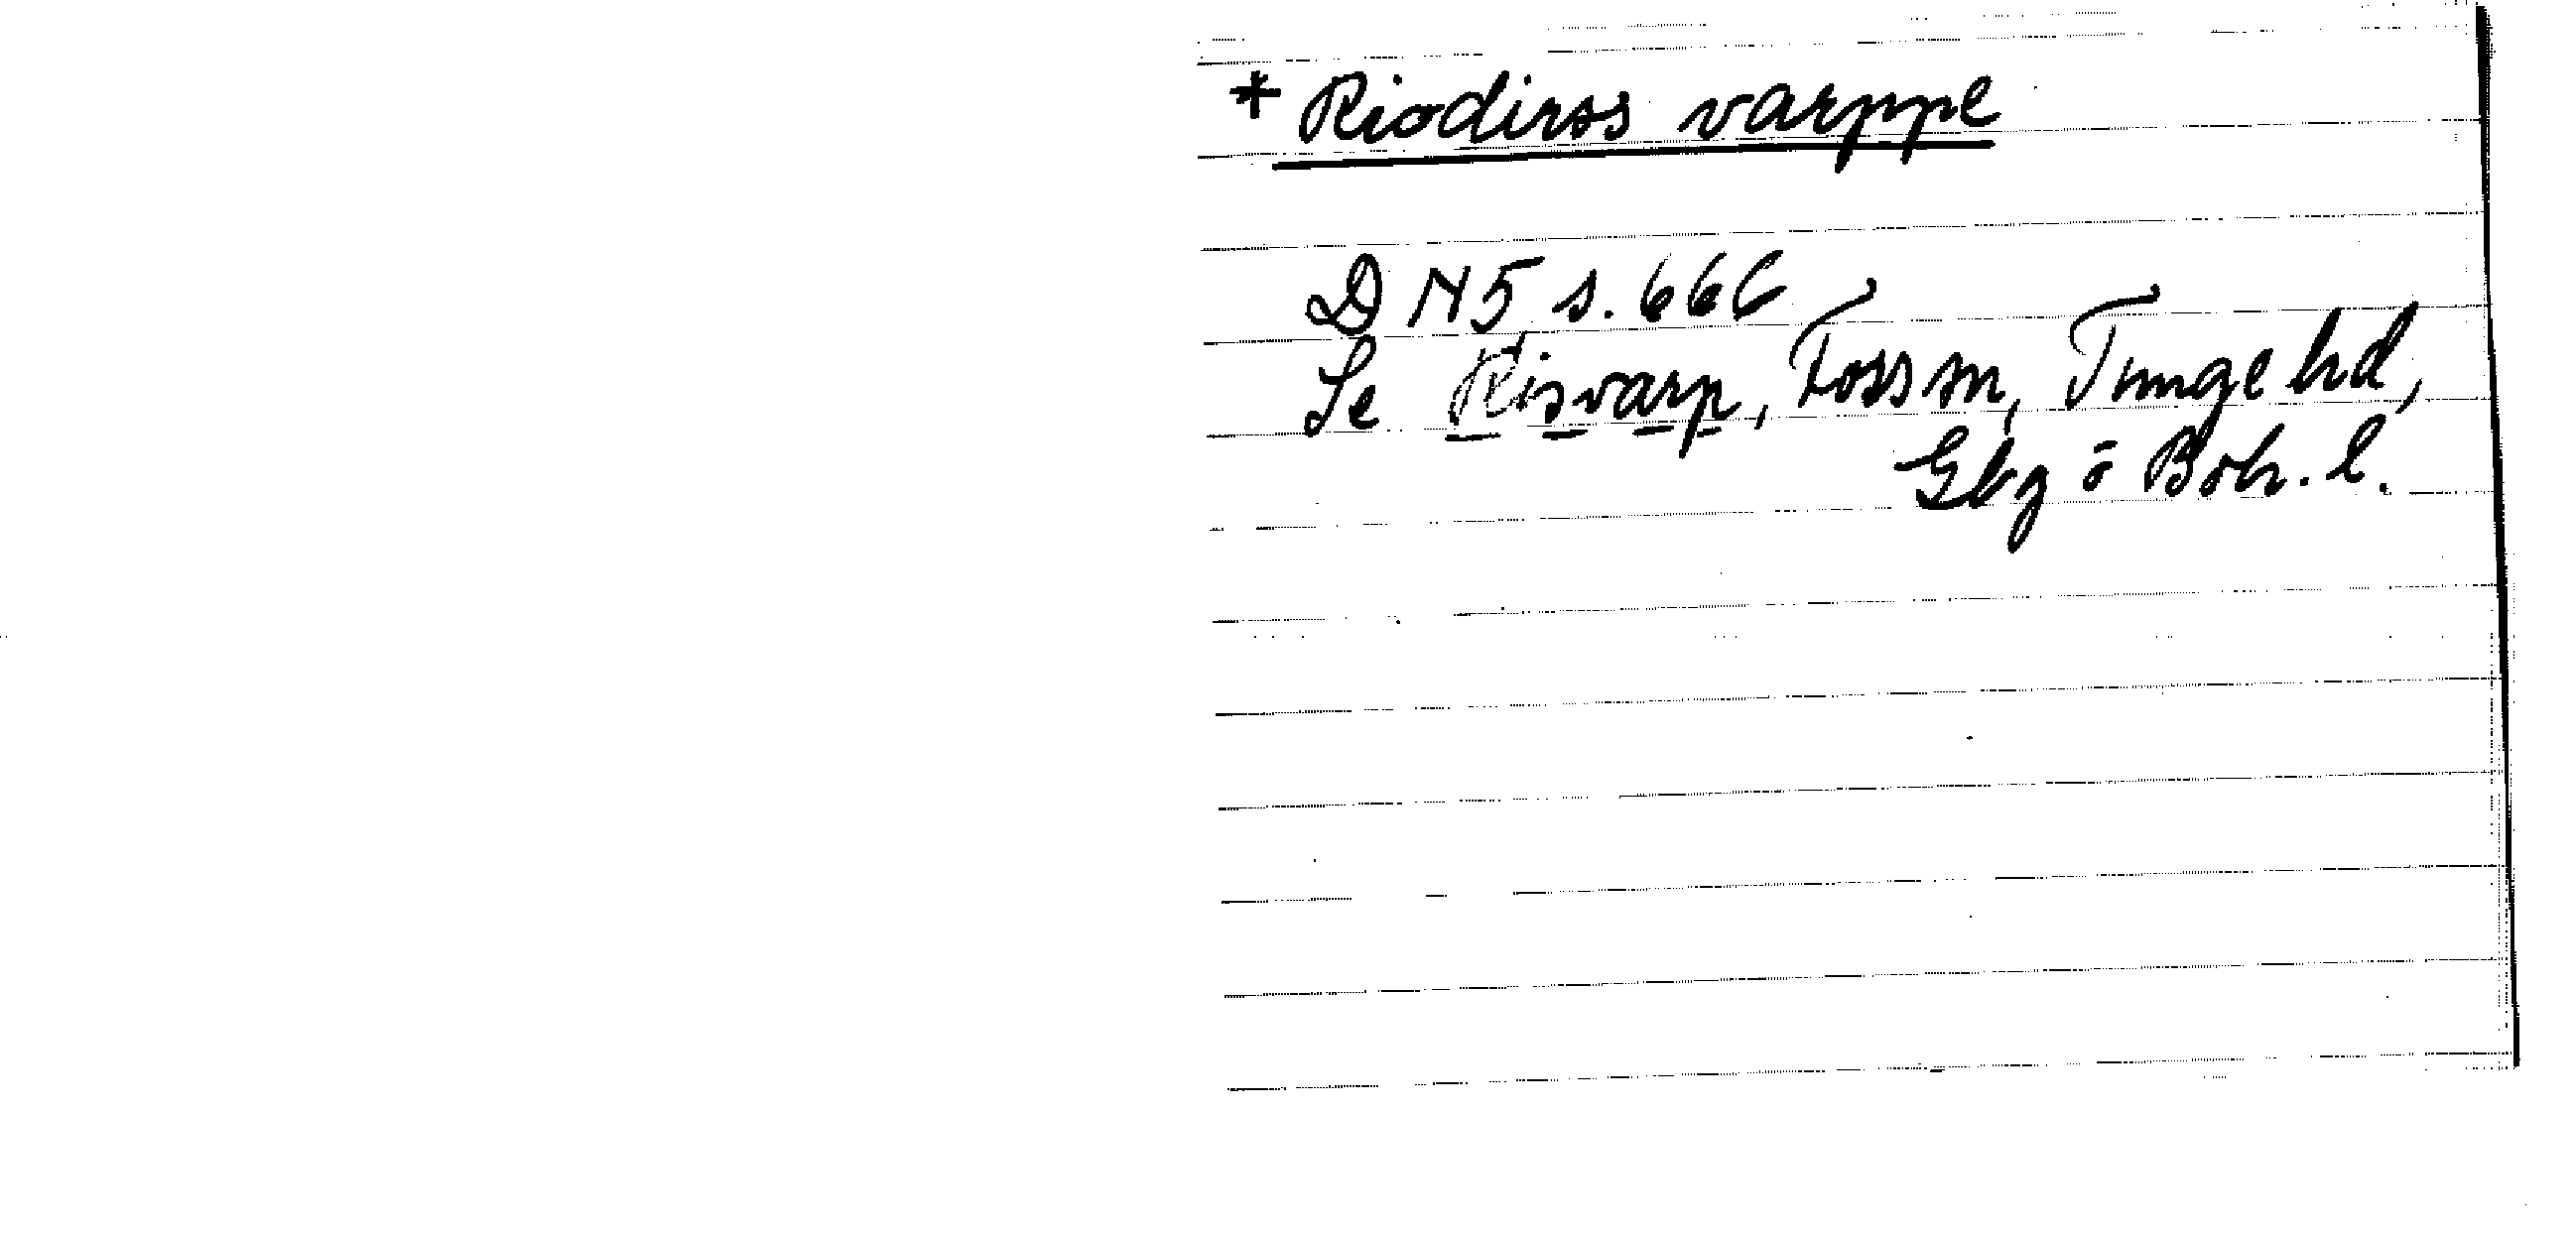 * Riodirss varppe
DN5 s. 666
Se Risvarp, Foss sn, Tunge hd,
Gbg o Boh. l.